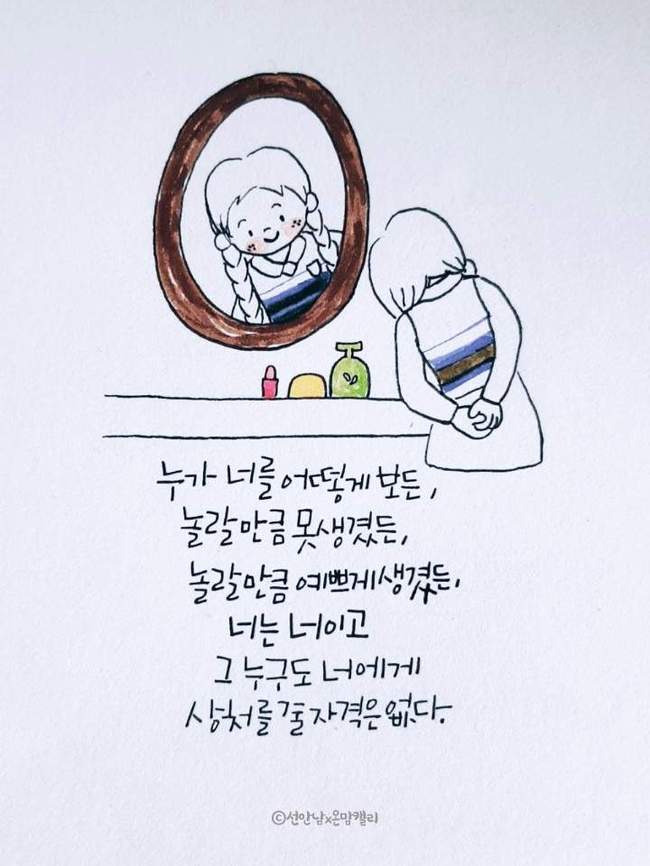 누가 너를 어떻게 보든,
놀랄만큼 못생겼든,
놀랄만큼 예쁘게 생겼든,
너는 너이고
그 누구도 너에게
상처를 줄 자격은 없다.
ⓒ선안남x온맘캘리